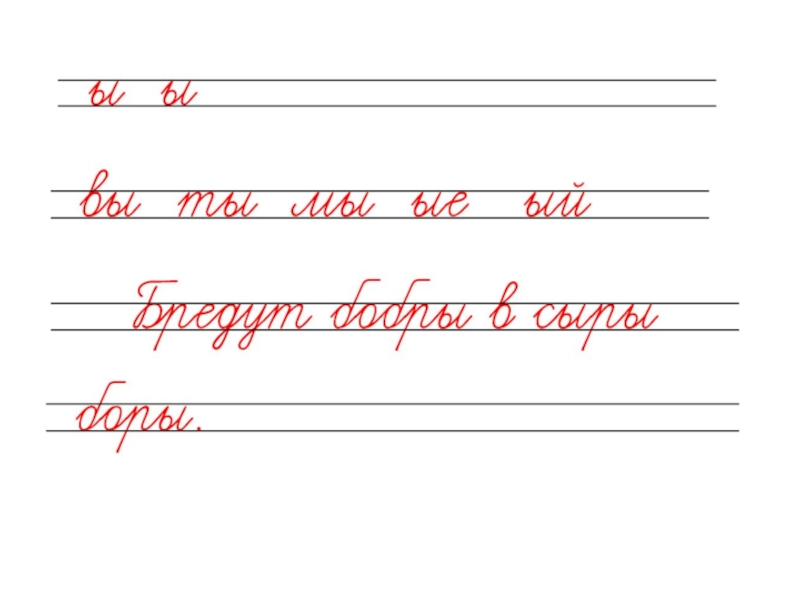 ы ы
вы ты мы ые ый
Бредут бобры в сыры
боры.